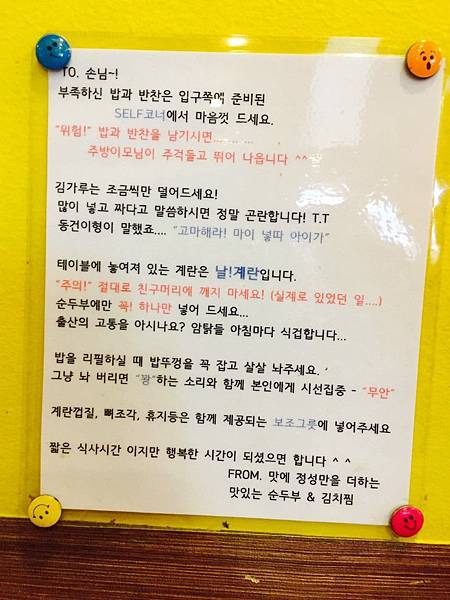 TO. 손님~!
부족하신 밥과 반찬은 입구쪽에 준비된
SELF코너에서 마음껏 드세요.
"위험!" 밥과 반찬을 남기시면... ... ...
주방이모님이 주걱들고 뛰어 나옵니다 ^^
김가루는 조금씩만 덜어드세요!
많이 넣고 짜다고 말씀하시면 정말 곤란합니다! T.T
동건이형이 말했죠.... "고마해라! 마이 넣따 아이가"
테이블에 놓여져 있는 계란은 날!계란입니다.
"주의!" 절대로 친구머리에 깨지 마세요! (실제로 있었던 일....)
순두부에만 꼭! 하나만 넣어 드세요...
출산의 고통을 아시나요? 암탉들 아침마다 식겁합니다...
밥을 리필하실 때 밥뚜껑을 꼭 잡고 살살 놔주세요.
그냥 놔 버리면 "꽝"하는 소리와 함께 본인에게 시선집중 - "무안"
계란껍질, 뼈조각, 휴지등은 함께 제공되는 보조그릇에 넣어주세요
짧은 식사시간 이지만 행복한 시간이 되셨으면 합니다 ^ ^
FROM. 맛에 정성만을 더하는
맛있는 순두부 & 김치찜